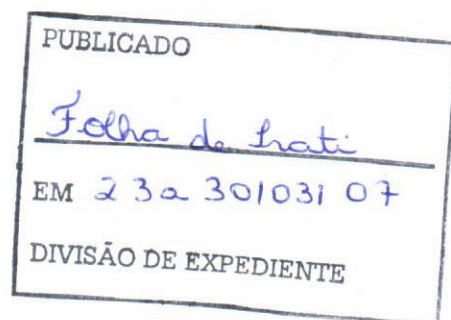 PUBLICADO
Folha de Irati
EM 23 a 30/03/07
DIVISÃO DE EXPEDIENTE